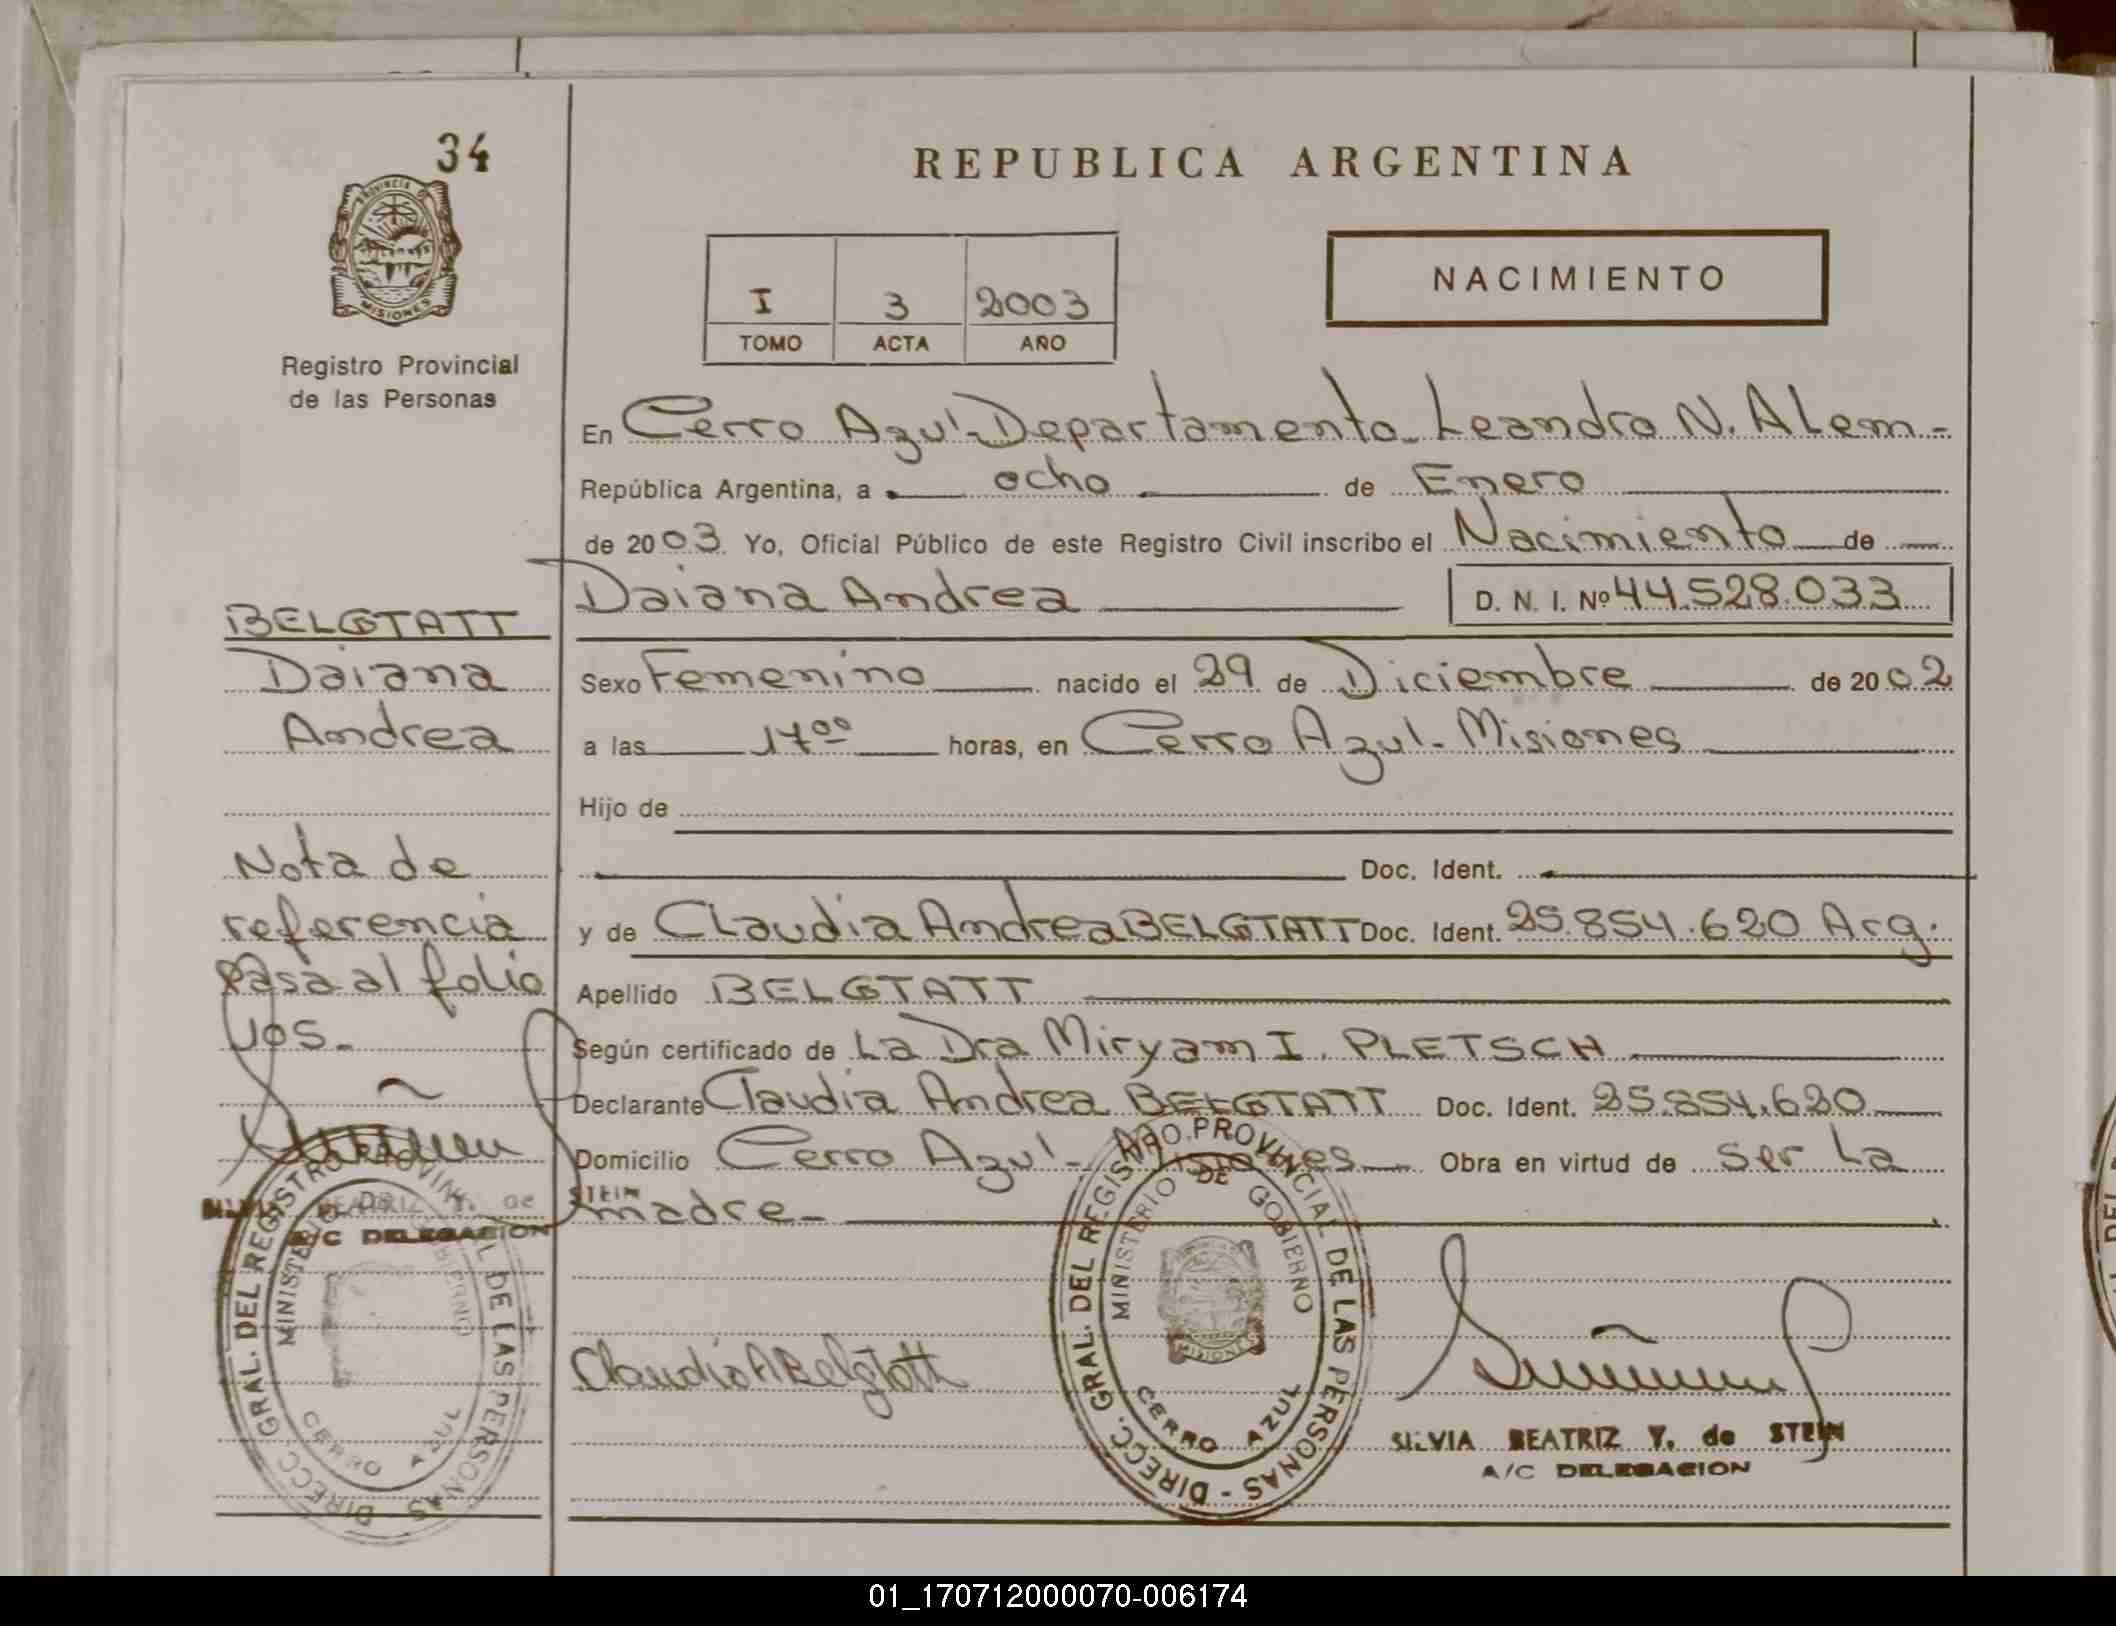 34
PROVINCIA D
MISIONES
Registro Provincial
de las Personas
BELGTATT
Daiana
Andrea
Nota de
referencia
Pasa al folio
REPUBLICA ARGENTINA
NACIMIENTO
I 3 2003
TOMO ACTA AÑO
En Cerro Azul-Departamento Leandro N. ALem-
República Argentina, a ocho de Enero
de 2003. Yo, Oficial Público de este Registro Civil inscribo el Nacimiento de
Daiana Andrea D. N. I. Nº 44.528.033
Sexo Femenino nacido el 29 de Diciembre de 2002
a las 17⁰⁰ horas, en Cerro Azul-Misiones
Hijo de
Doc. Ident.
y de CLaudia Andrea BELGTATT Doc. Ident. 25.854.620 Arg.
Apellido BELGTATT
Según certificado de La Dra Miryam I. PLETSCH
Declarante Claudia Andrea BELGTATT Doc. Ident. 25.854.620
Domicilio Cerro Azul-Misiones Obra en virtud de ser La
madre-
BEATRIZ Y. de STEIN
A/C DELEGACION
DIRECC. GRAL. DEL REGISTRO PROVINCIAL DE LAS PERSONAS
MINISTERIO DE GOBIERNO
CERRO AZUL
DIRECC. GRAL. DEL REGISTRO PROVINCIAL DE LAS PERSONAS -
MINISTERIO DE GOBIERNO
MISIONES
CERRO AZUL
Claudia A Belgtatt
SILVIA BEATRIZ Y. de STEIN
A/C DELEGACION
01_170712000070-006174